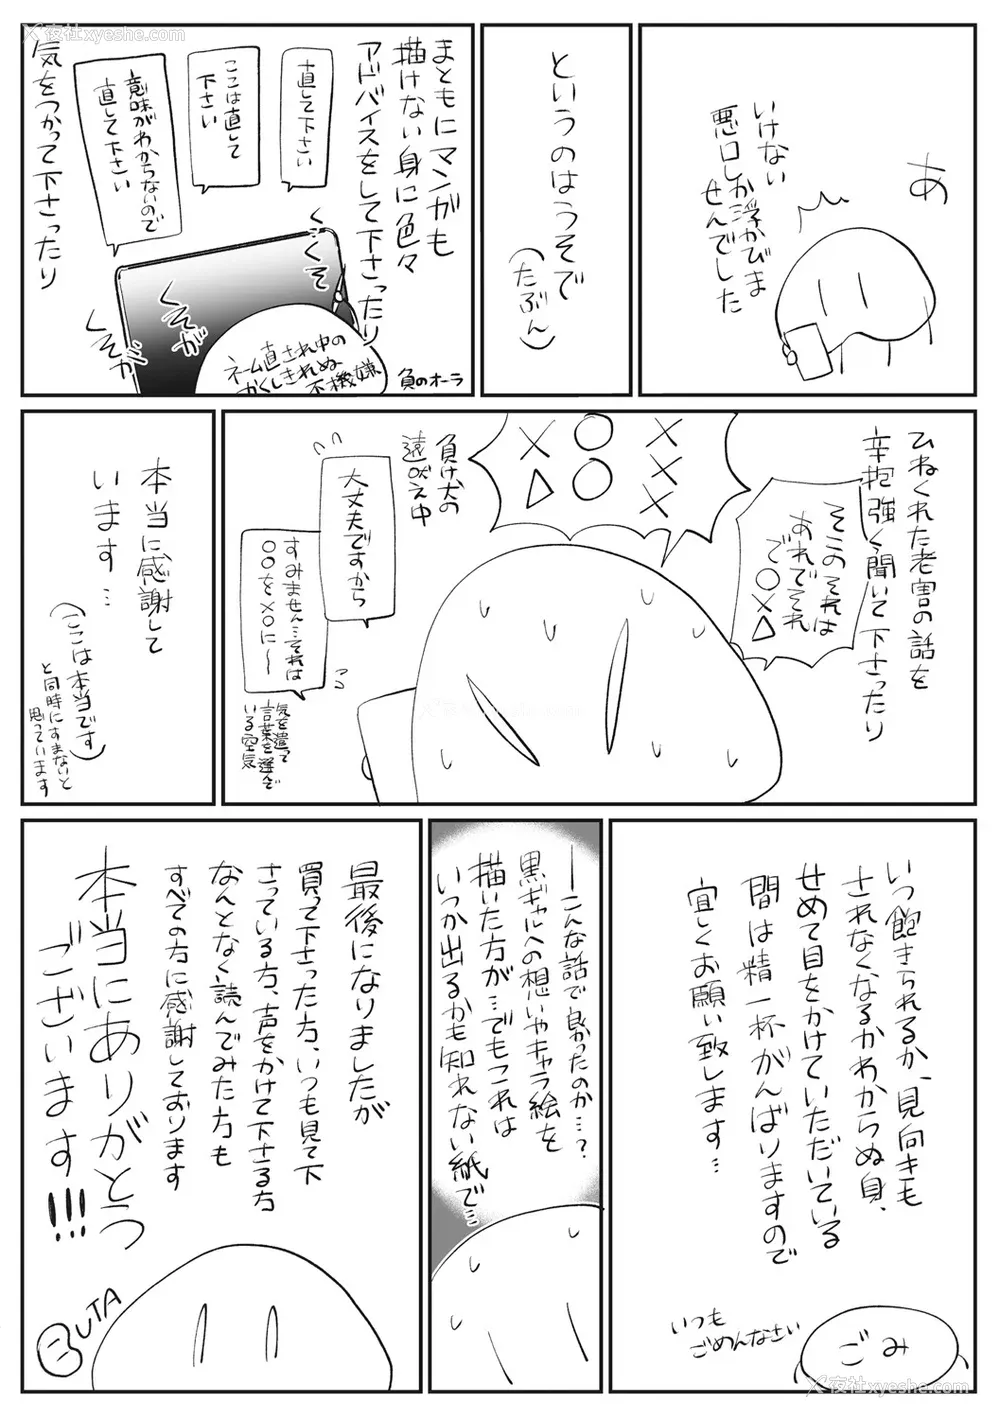 あ
いけない
悪口しか浮かびま
せんでした
というのはうそで
(たぶん)
まともにマンガも
描けない身に色々
アドバイスをして下さったり
直して下さい
ここは直して
下さい
意味がわからないので
直して下さい
気をつかって下さったり
くそ
くそが
くそが
ネーム直され中の
かくしきれぬ
不機嫌
負のオーラ
ひねくれた老害の話を
辛抱強く聞いて下さったり
そこのそれは
あれでそれ
で○×△
××× ○○ ×△
負け犬の
遠吠え中
大丈夫ですから
すみません…それは
○○を×○に〜
気を遣って
言葉を選んで
いる空気
本当に感謝して
います…
(ここは本当です)
と同時にすまないと
思っています
いつ飽きられるか、見向きも
されなくなるかわからぬ身、
せめて目をかけていただいている
間は精一杯がんばりますので
宜しくお願い致します…
いつも
ごめんなさい
ごみ
―こんな話で良かったのか…?
黒ギャルへの想いやキャラ絵を
描いた方が…でもこれは
いつか出るかも知れない紙で…
最後になりましたが
買って下さった方、いつも見て下
さっている方、声をかけて下さる方
なんとなく読んでみた方も
すべての方に感謝しております
本当にありがとう
ございます!!!
BUTA
夜社xyeshe.com
夜社xyeshe.com